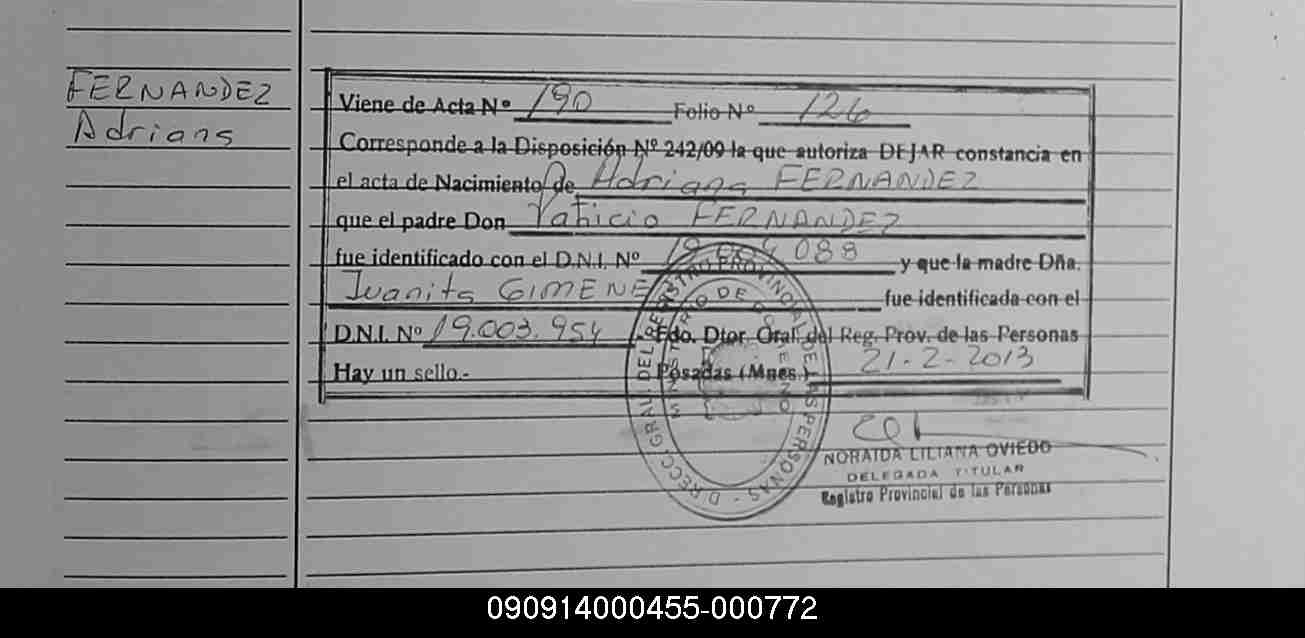 FERNANDEZ
Adriana
Viene de Acta Nº 190 Folio Nº 126
Corresponde a la Disposición Nº 242/09 la que autoriza DEJAR constancia en
el acta de Nacimiento de Adriana FERNANDEZ
que el padre Don FERNANDEZ
fue identificado con el D.N.I. Nº y que la madre Dña.
Juanita GIMENE
fue identificada con el
D.N.I. Nº 19.003.954 - Fdo. Dtor. Gral. del Reg. Prov. de las Personas
Hay un sello.- Posadas (Mnes.) 21-2-2013
DIRECC. GRAL. DEL REGISTRO PROVINCIAL DE LAS PERSONAS -
MINISTERIO DE GOBIERNO
NORAIDA LILIANA OVIEDO
DELEGADA TITULAR
Registro Provincial de las Personas
090914000455-000772